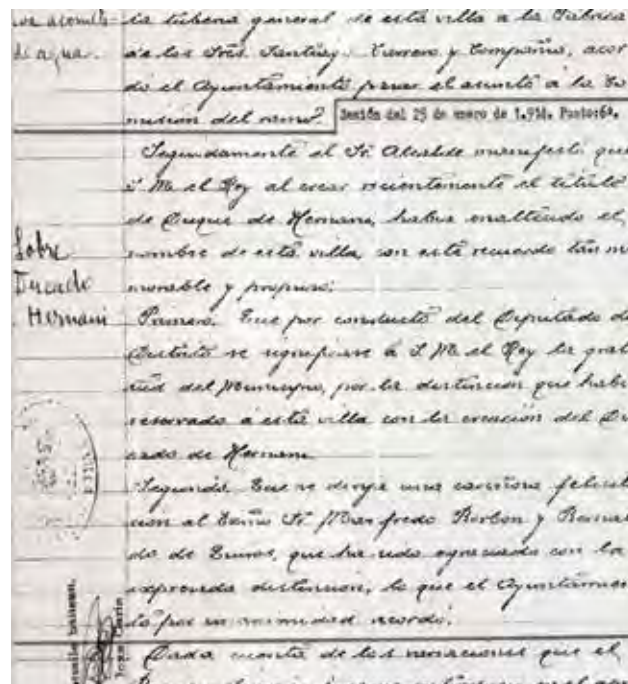 los acometi-
de agua.
la tubería general de esta villa a la Fábrica
de los Sres. Santiago Carrero y Compañía, acor
dó el Ayuntamiento pasar el asunto a la Co
misión del ramo.
Sesión del 25 de enero de 1.914. Punto:6º.
Sobre
Ducado
Hernani
Seguidamente el Sr. Alcalde manifestó que
S. M. el Rey al crear recientemente el título
de Duque de Hernani, había enaltecido el
nombre de esta villa, con este recuerdo tan m
morable y propuso:
Primero. Que por conducto del Diputado a
Distrito se significase a S. M. el Rey la grat
tud del Municipio, por la distinción que habí
reservado a esta villa con la creación del Du
cado de Hernani.
Segundo. Que se dirija una cariñosa felicit
ción al Excmo Sr. Manfredo Borbon y Bernal
do de Quiros, que ha sido agraciado con la
expresada distinción, lo que el Ayuntamien
to por unanimidad acordó.
Dada cuenta de las variaciones que el